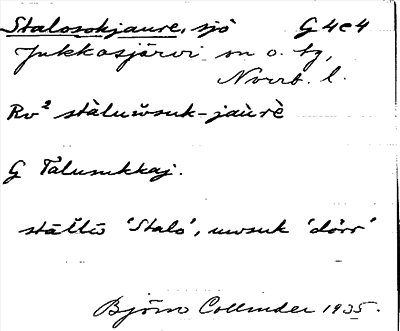 Stalosokjaure, sjö G4e4
Jukkasjärvi sn o. tg,
Norrb. l.
Rv² stàluw̌suk-jaùrè
G Talusukkaj.
stāl̄ū 'Stalo', uwsuk 'dörr'
Björn Collinder 1935.